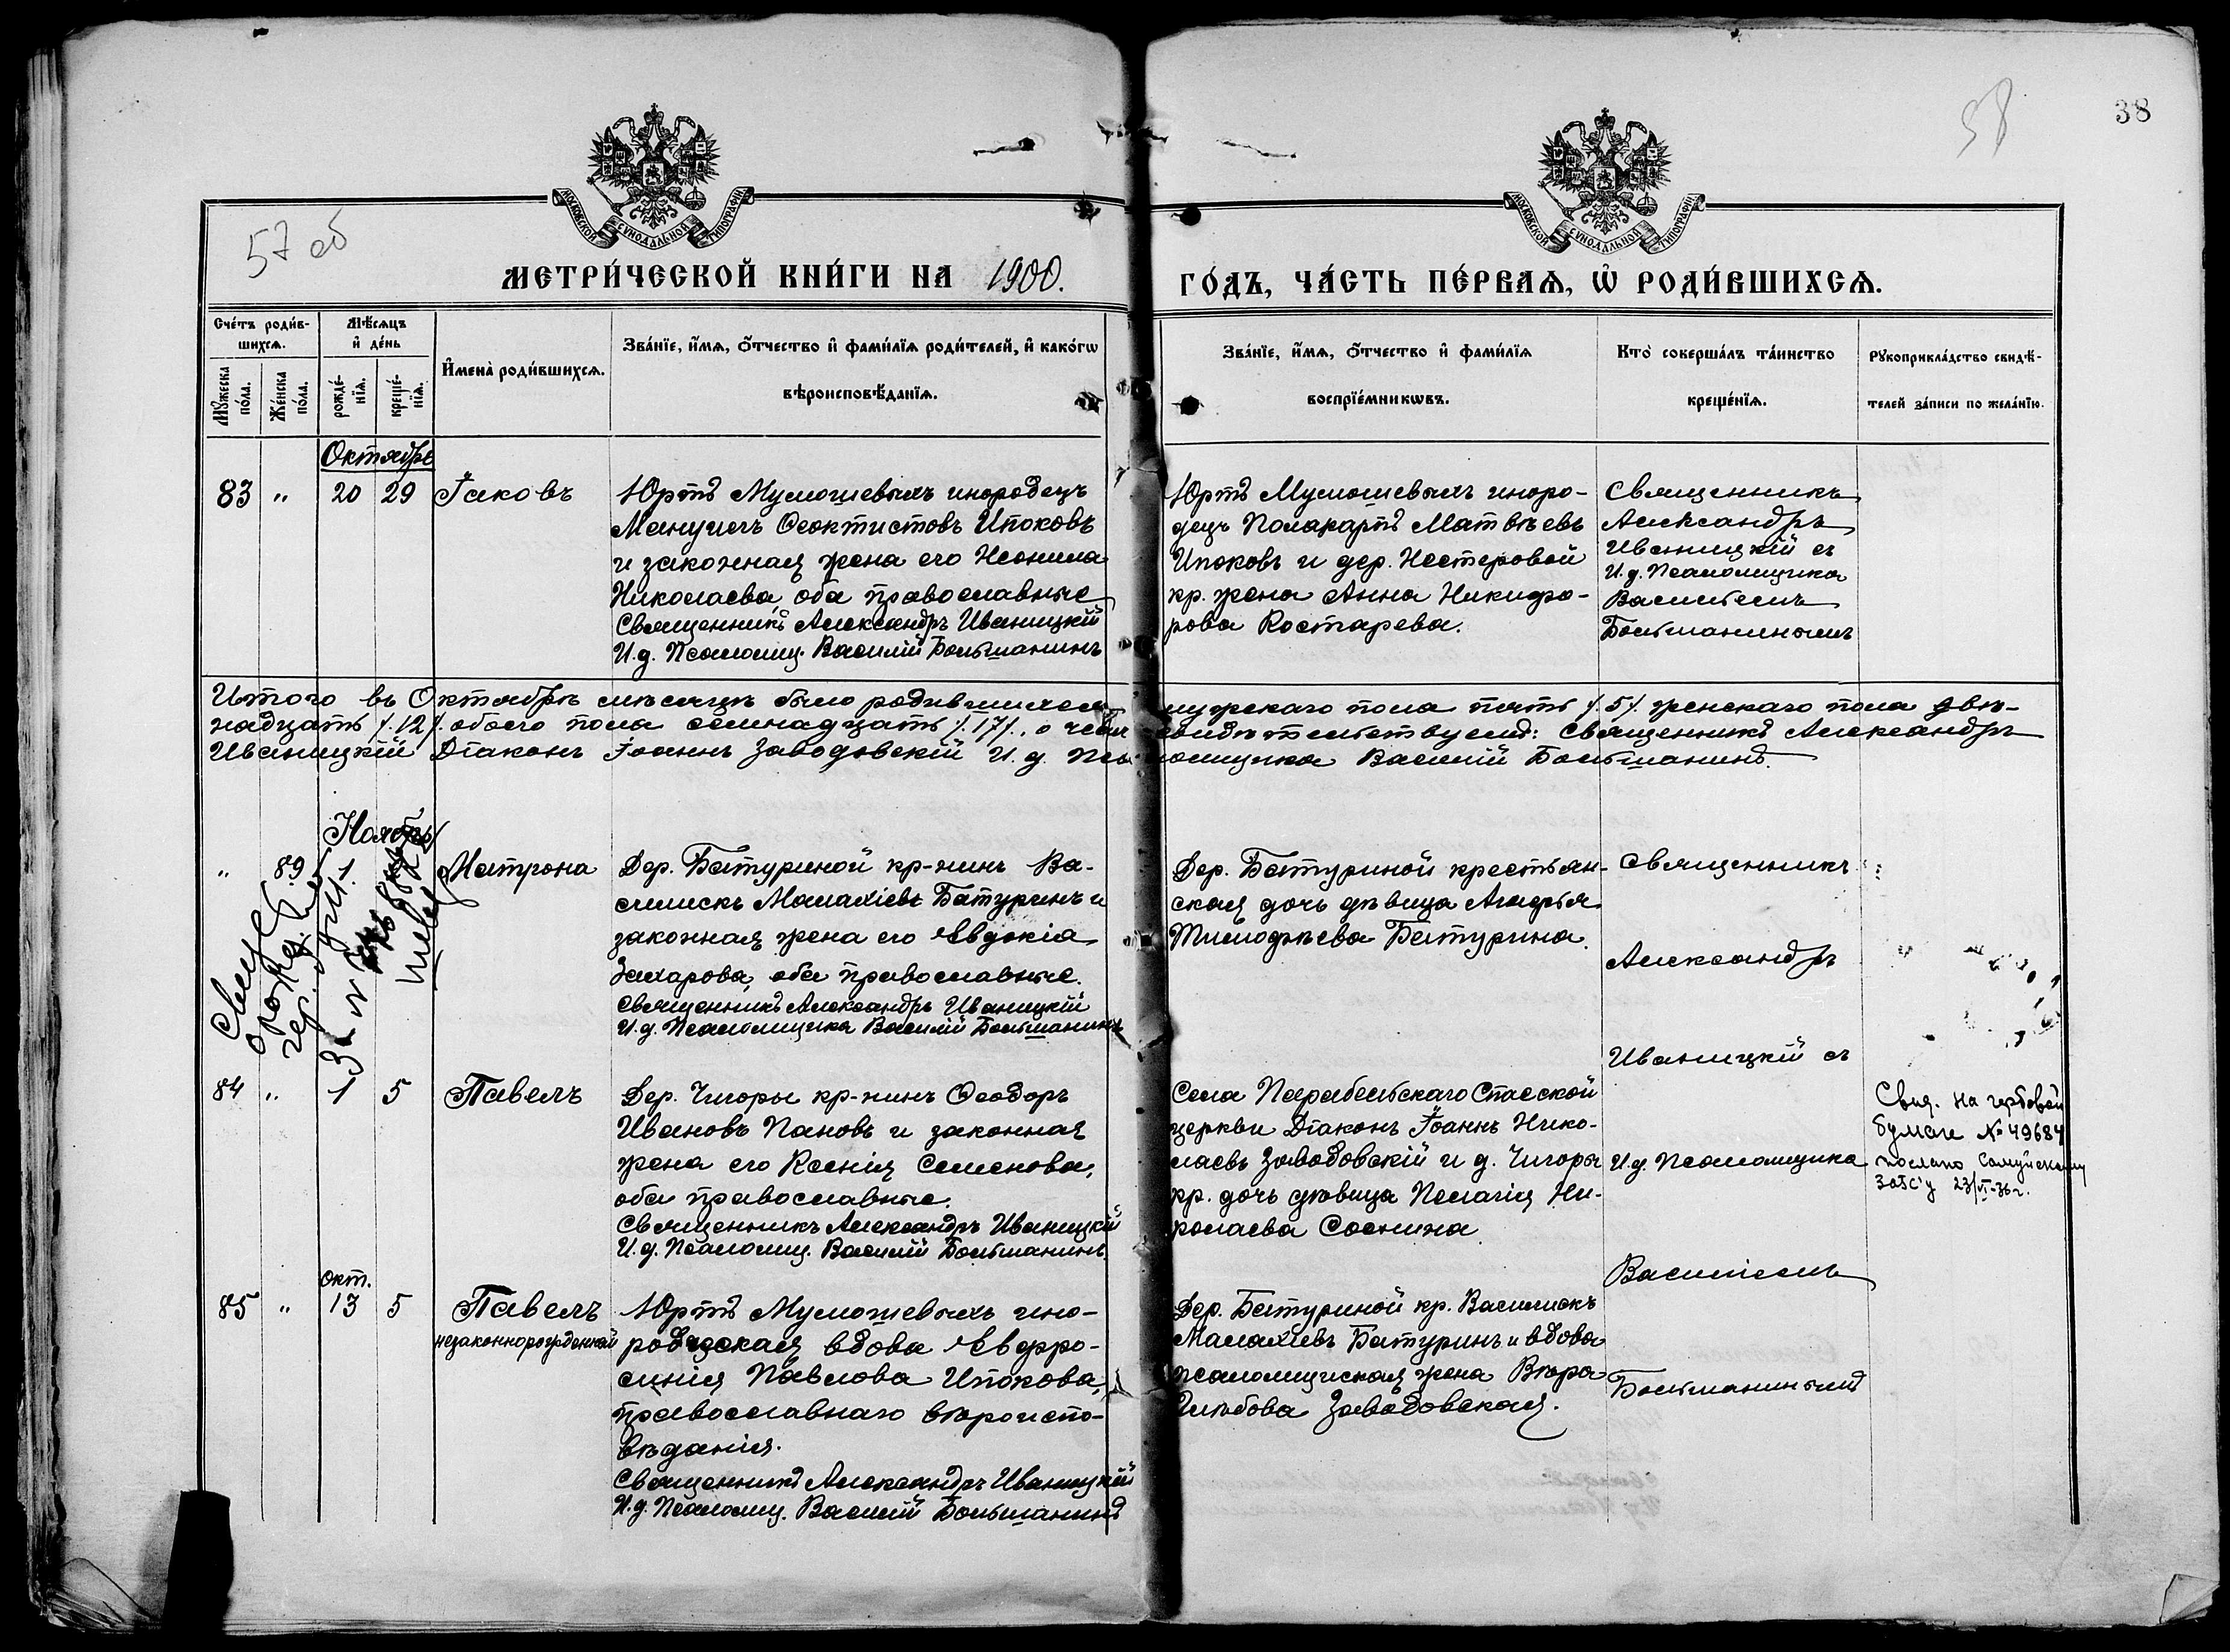 38
58
57 об
МОСКОВСКОЙ СѴНОДАЛЬНОЙ ТИПОГРАФІИ
МОСКОВСКОЙ СѴНОДАЛЬНОЙ ТИПОГРАФІИ
МЕТРИ́ЧЕСКОЙ КНИ́ГИ НА 1900.
ГО́ДЪ, ЧА́СТЬ ПЕ́РВАѦ, Ѡ҆ РОДИ́ВШИХСѦ.
Сче́тъ роди́в-
шихсѧ.
Мꙋ́жеска по́ла.
Же́нска по́ла.
Мѣ́сѧцъ
и҆ де́нь
рожде́-
нїѧ.
креще́-
нїѧ.
И҆мена̀ роди́вшихсѧ.
Зва́нїе, и҆́мѧ, ѻ҆́тчество и҆ фами́лїѧ роди́телей, и҆ како́гѡ
вѣроисповѣ́данїѧ.
Зва́нїе, и҆́мѧ, ѻ҆́тчество и҆ фами́лїѧ
воспрїе́мникѡвъ.
Кто̀ соверша́лъ та́инство
креще́нїѧ.
Рꙋкоприкла́дство свидѣ́-
телей за́писи по жела́нїю.
Октябрь
83 " 20 29 Іаковъ
Юртъ Мумошевыхъ инородецъ
Мануилъ Ѳеоктистовъ Ипоковъ
и законная жена его Неонила
Николаева, оба православные
Священникъ Александръ Иваницкій
И.д. Псаломщ. Василій Большанинъ
Юртъ Мумошевыхъ иноро-
децъ Поликарпъ Матвѣевъ
Ипоковъ и дер. Нестеровой
кр. жена Анна Никифо-
рова Костарева.
Священникъ
Александръ
Иваницкій съ
И.д. Псаломщика
Василіемъ
Большанинымъ
Итого въ Октябрѣ мѣсяцѣ было родившихся мужскаго пола пять /.5/. женскаго пола двѣ-
надцать /.12/. обоего пола семнадцать /.17/., о чемъ свидѣтельствуемъ: Священникъ Александръ
Иваницкій Діаконъ Іоаннъ Заводовскій И.д. Псаломщика Василій Большанинъ.
Ноябрь
" 89 1. Матрона
Дер. Батуриной кр-нинъ Ва-
силискъ Малахіевъ Батуринъ и
законная жена его Евдокія
Захарова, оба православные.
Священникъ Александръ Иваницкій
И.д. Псаломщика Василій Большанинъ
Дер. Батуриной крестьян-
ская дочь дѣвица Агафья
Тимофѣева Батурина.
Священникъ
Александръ
Иваницкій съ
И.д. Псаломщика
Василіемъ
Большанинымъ
84 " 1 5 Павелъ
Дер. Чигоры кр-нинъ Ѳеодоръ
Ивановъ Пановъ и законная
жена его Ксенія Семенова,
оба православные.
Священникъ Александръ Иваницкій
И.д. Псаломщ. Василій Большанинъ.
Села Парабельскаго Спасской
церкви Діаконъ Іоаннъ Нико-
лаевъ Заводовскій и д. Чигоры
кр. дочь дѣвица Пелагія Ни-
колаева Соснина
Свид. на гербовой
бумаге № 49684
послано
загс'у 23/VI-36 г.
окт.
85 " 13 5 Павелъ
незаконнорожденный
Юртъ Мумошевыхъ ино-
родческая вдова Евфро-
синія Павлова Ипокова,
православнаго вѣроиспо-
вѣданія.
Священникъ Александръ Иваницкій
И.д. Псаломщ. Василій Большанинъ
Дер. Батуриной кр. Василискъ
Малахіевъ Батуринъ и вдова
псаломщическая жена Вѣра
Глѣбова Заводовская.